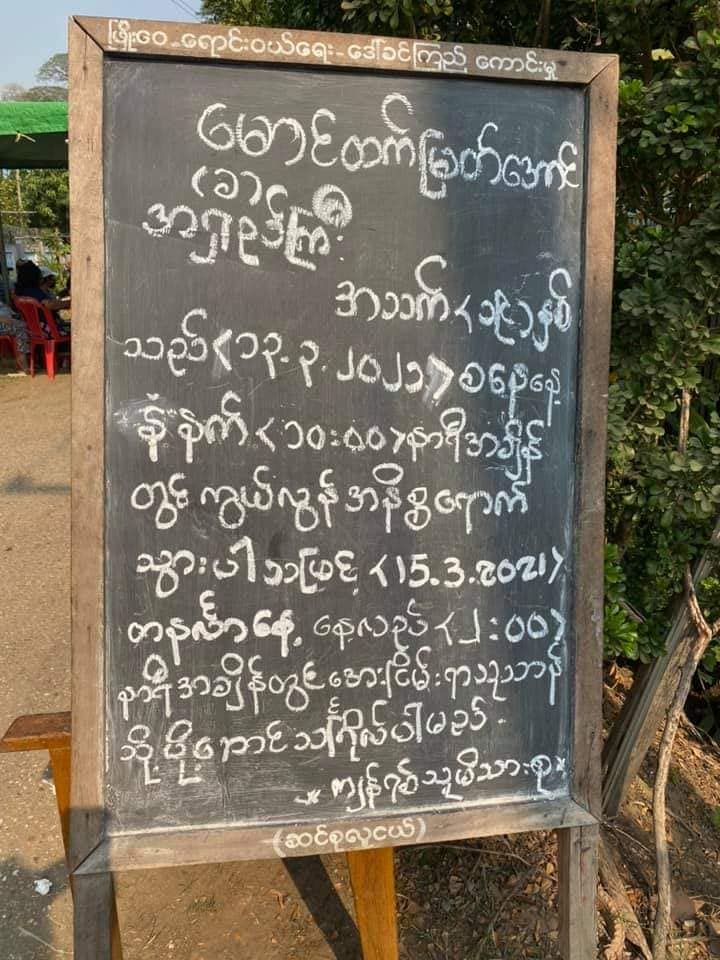 ဖြိုးဝေ-ရောင်းဝယ်ရေး-ဒေါ်ခင်ကြည် ကောင်းမှု
မောင်ထက်မြတ်အောင်
(ခ)
အရှည်ကြီး
အသက်<၁၉>နှစ်
သည်<၁၃.၃.၂၀၂၁>စနေနေ့
နံနက်<၁၀:၀၀>နာရီအချိန်
တွင် ကွယ်လွန်အနိစ္စရောက်
သွားပါသဖြင့် <15.3.2021>
တနင်္လာနေ့ နေ့လည် <၂:၀၀>
နာရီအချိန်တွင်အေးငြိမ်းရာသုသာန်
သို့ ပို့ဆောင်သင်္ဂြိုလ်ပါမည်.
*ကျန်ရစ်သူမိသားစု*
(ဆင်စုလူငယ်)